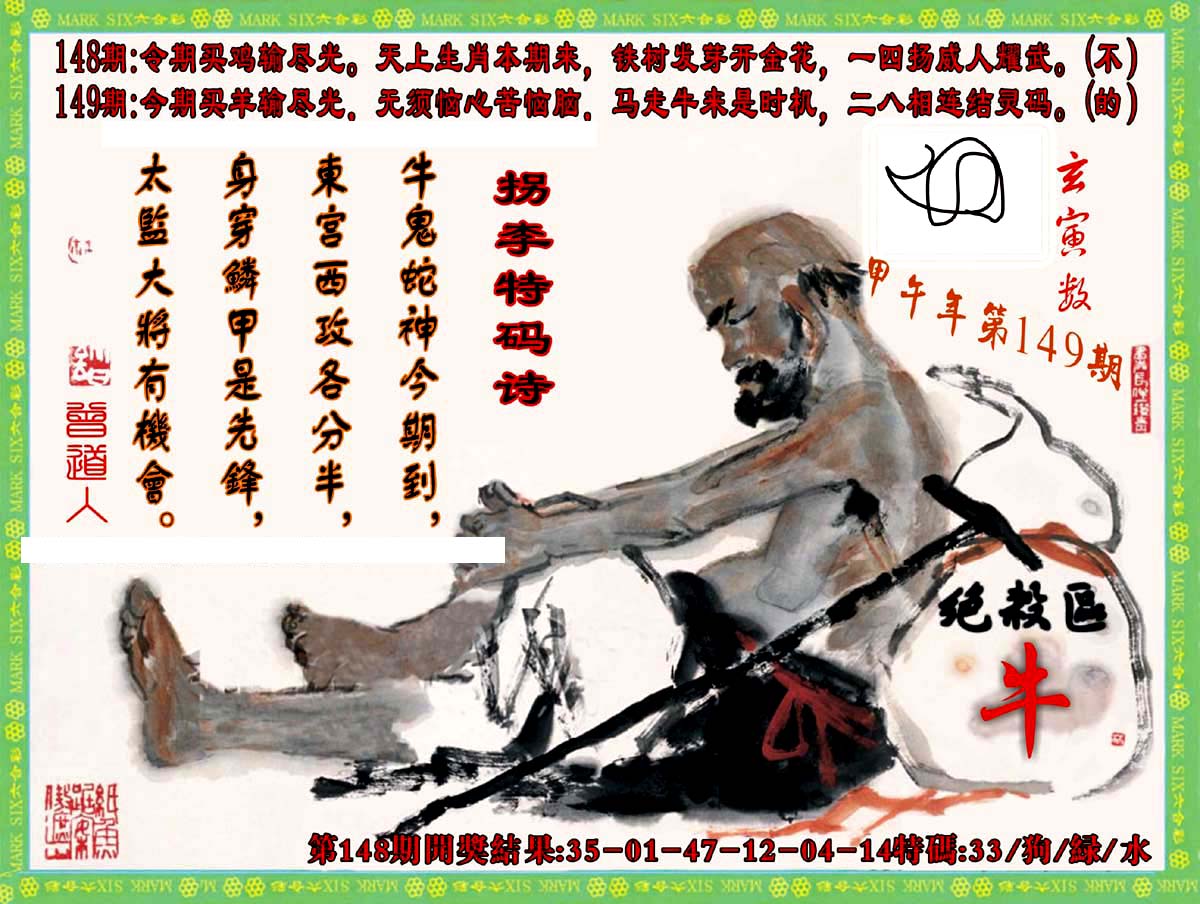 MARK SIX六合彩 MARK SIX六合彩 MARK SIX六合彩 MARK SIX六合彩 MARK SIX六合彩 MARK SIX六合彩 MARK SIX六合彩
148期:令期买鸡输尽光。天上生肖本期来，铁树发芽开金花，一四扬威人耀武。(不)
149期:今期买羊输尽光．无须恼心苦恼脑．马走牛来是时机，二八相连结灵码。(的)
拐李特码诗
牛鬼蛇神今期到，
東宫西攻各分半，
身穿鱗甲是先鋒，
太監大將有機會。
曾道人
玄寅数
甲午年第149期
绝殺区
牛
第148期開奖結果:35-01-47-12-04-14特碼:33/狗/緑/水